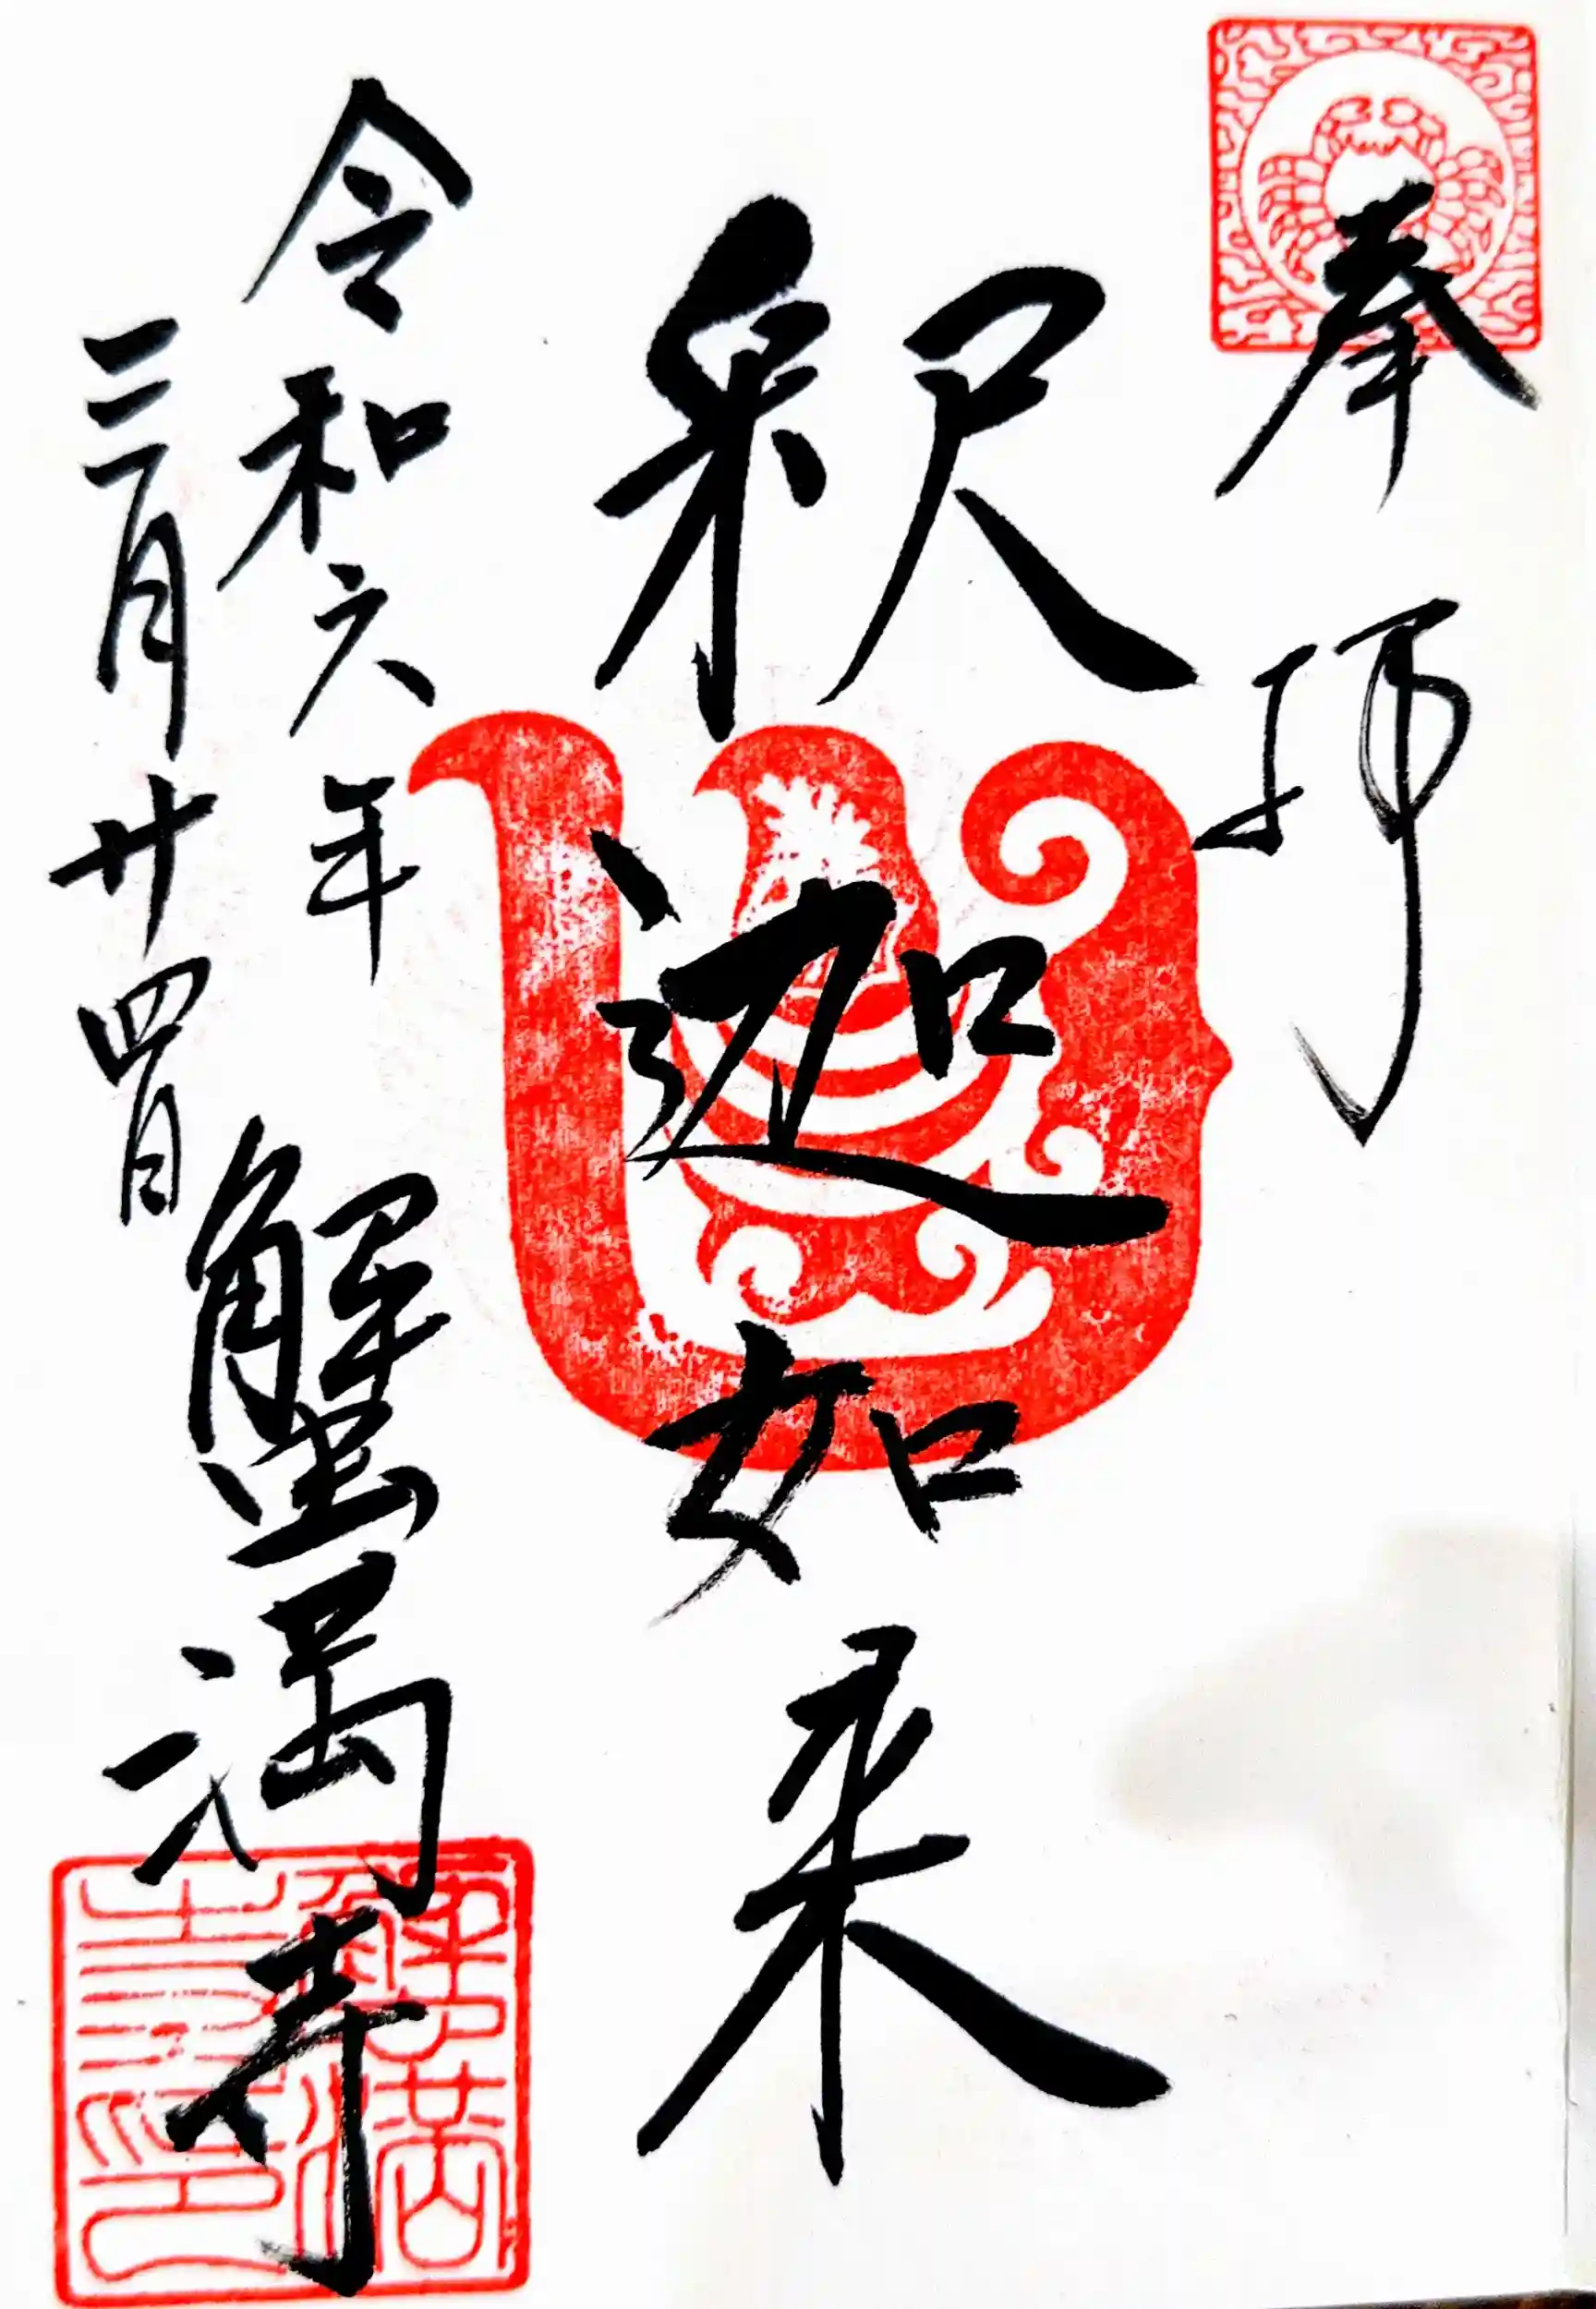 奉拝
釈迦如来
令和六年
三月廿四日
蟹満寺
蟹満
寺印